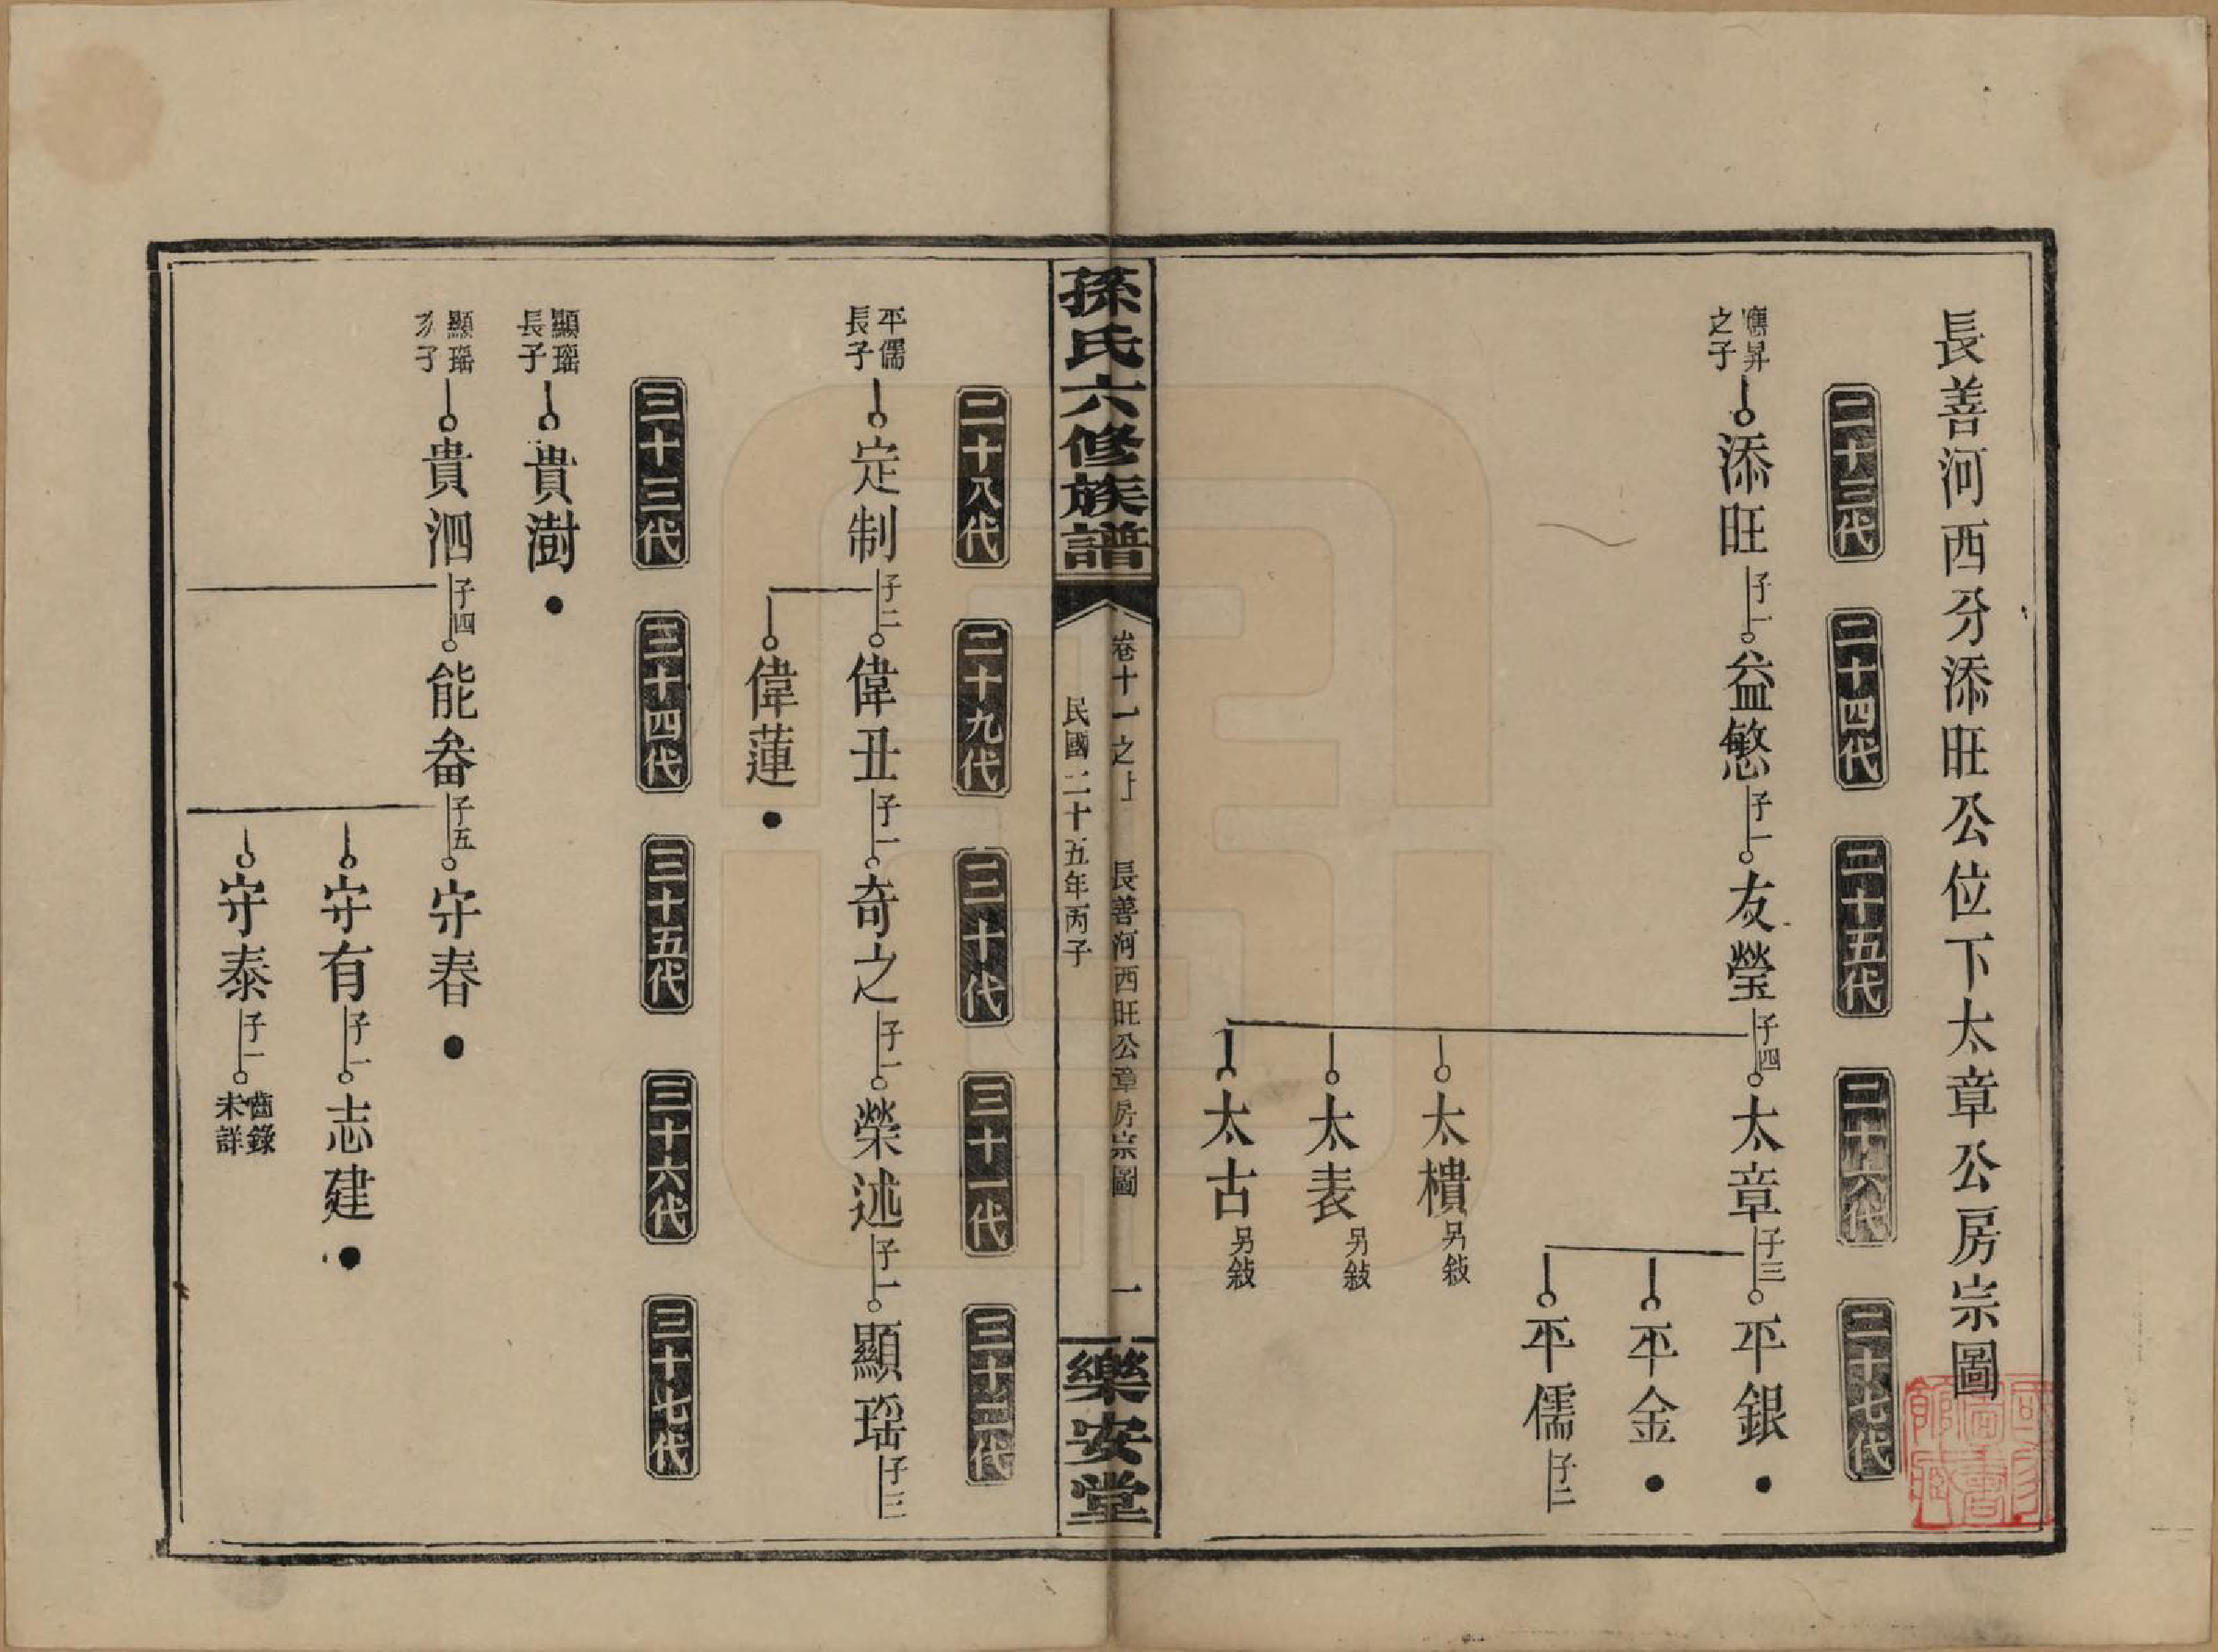 長善河西分添旺公位下太章公房宗圖
二十三代 二十四代 二十五代 二十六代 二十七代
應昇之子 添旺 子一 益慜 子一 友瑩 子四 太章 子三 平銀
平金
平儒 子二
太樻 另敍
太表 另敍
太古 另敍
孫氏六修族譜 卷十一之上 長善河西旺公章房宗圖 一 樂安堂
民國二十五年丙子
二十八代 二十九代 三十代 三十一代 三十二代
平儒長子 定制 子二 偉丑 子一 奇之 子一 榮述 子一 顯瑶 子三
偉蓮
三十三代 三十四代 三十五代 三十六代 三十七代
顯瑶長子 貴澍
顯瑶次子 貴泗 子四 能畚 子五 守春
守有 子一 志建
守泰 子一 齒錄未詳